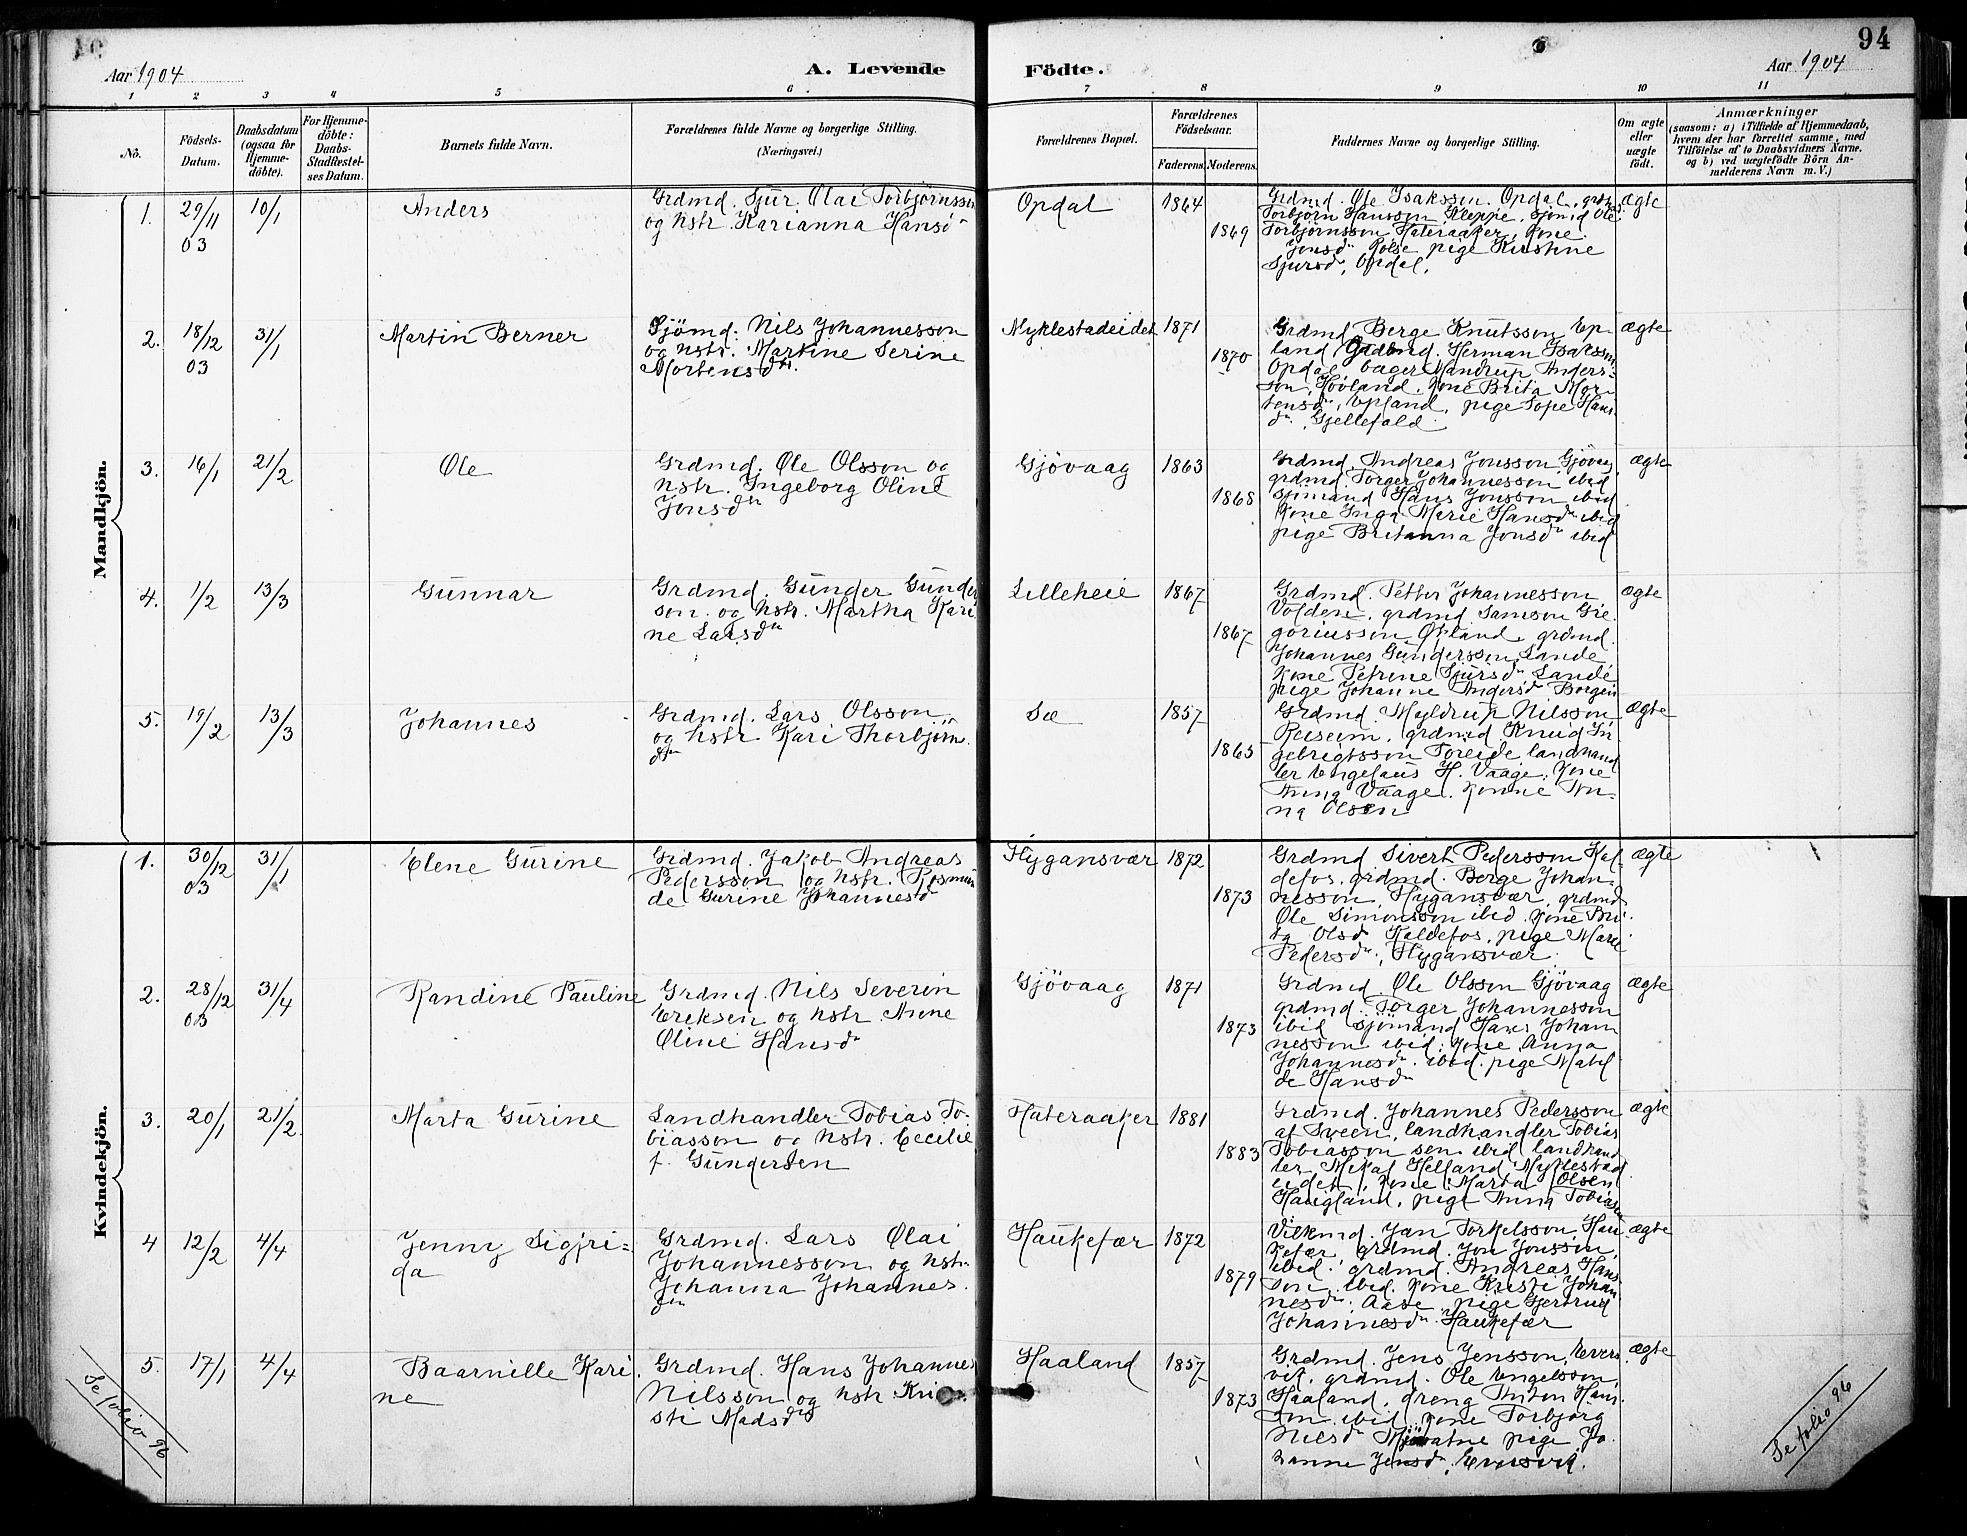 94
Aar 1904
A. Levende Födte.
Aar 1904
1 2 3 4 5 6 7 8 9 10 11
No.
Födsels-
Datum.
Daabsdatum
(ogsaa for
Hjemme-
döbte).
For Hjemme-
döbte:
Daabs-
Stadfæstel-
ses Datum.
Barnets fulde Navn.
Forældrenes fulde Navne og borgerlige Stilling.
(Næringsvei.)
Forældrenes Bopæl.
Forældrenes
Födselsaar.
Faderens. Moderens.
Faddernes Navne og borgerlige Stilling.
Om ægte
eller
uægte
født.
Anmærkninger
(saasom: a) i Tilfælde af Hjemmedaab,
hvem der har forrettet samme, med
Tilföielse af to Daabsvidners Navne.
og b) ved uægtefödte Börn An-
melderens Navn m. V.)
Mandkjön.
1.
29/11
03
10/1
Anders
Grdmd. Sjur Olai Torbjørnsson
og hstr. Karianna Hansd
Opdal
1864
1869
Grdmd. Ole Isaksson Opdal, grdmd.
Torbjørn Hansson Kleppe, sjømd Ole
Torbjørnsson Hateraaker, Kone
Jonsd Rolse pige Kirstine
Sjursd, Opdal.
ægte
2.
18/12
03
31/1
Martin Berner
Sjömd. Nils Johannesson
og hstr. Martine Serine
Mortensdtr.
Myklestadeidet
1871
1870
Grdmd Berge Knutsson Ep-
land Grdmd. Herman Isaksson
Opdal, bager Mandrup Anders-
son, Hovland, Kone Brita Mor-
tensd, Epland, pige Sofie Hans
dr. Gjellefald
ægte
3.
16/1
21/2
Ole
Grdmd. Ole Olsson og
hstr. Ingeborg Oline
Jonsdtr
Gjövaag
1863
1868
Grdmd. Andreas Jonsson Gjövaag
grdmd. Torger Johannesson ibid
sjömand Hans Jonsson ibid
Kone Inga Marie Hansdr ibid
pige Britanna Jonsdr ibid
ægte
4.
1/2
13/3
Gunnar
Grdmd. Gunder Gunder
son og hstr. Martha Kari
ne Larsdtr
Lilleheie
1867
1867
Grdmd. Petter Johannesson
Volden, grdmd Samson Gre-
goriusson Økland, grdmd.
Johannes Gundersson Lande
Kone Petrine Sjursdr Lande
pige Johanne Andersd Borgen
ægte
5.
19/2
13/3
Johannes
Grdmd. Lars Olsson
og hstr Kari Thorbjørn
dtr
Sæ
1857
1865
Grdmd. Myldrup Nilsson
Reiseim, grdmd Knud In
gebrigtsson Toreide landhand
ler Engelaus H. Vaage, Kone
Anna Vaage. Konne An-
na Olsen
ægte
Kvindekjön.
1.
30/12
03
31/1
Elene Gurine
Grdmd. Jakob Andreas
Pedersson og hstr. Rosmun
de Gurine Johannesd
Flygansvær
1872
1873
Grdmd Sivert Pedersson Kal-
defos, grdmd. Berge Johan-
nesson, Flygansvær, grdmd
Ole Simonsson ibid. Kone Bri-
ta Olsd Kaldefos, pige Marie
Pedersdr, Flygansvær
ægte
2.
28/12
03
31/4
Randine Pauline
Grdmd. Nils Severin
Eriksen og hstr. Anne
Oline Hansdr
Gjövaag
1871
1873
Grdmd. Ole Olsson Gjövaag
grdmd. Torger Johannesson
ibid sjömand Hans Johan
nesson ibid. Kone Anna
Johannesdr. ibid. pige Matil
de Hansdr
ægte
3.
20/1
21/2
Marta Gurine
Landhandler Tobias To-
biasson og hstr. Cecilie
f. Gundersen
Hateraaker
1881
1883
Grdmd. Johannes Pedersson
af Sveen, landhandler Tobias
Tobiasson sen ibid landhand
ler Mikal Helland Myklestad
eidet, Kone Marta Olsen
Haugland, pige Anna Tobiasen
ægte
4
12/2
4/4
Jenny Sigfri-
da
Grdmd. Lars Olai
Johannesson og hstr
Johanna Johannes
dtr
Haukefær
1872
1879
Vilkmd. Jan Torkelsson, Hau
kefær, grdmd. Jon Jonsson,
ibid. grdmd. Andreas Hans
son ibid. Kone Kristi Johan
nesdr. Aase, pige Gjertrud
Johannesdr. Haukefær
ægte
5.
17/1
4/4
Baarnille Kari
ne
Grdmd. Hans Johannes
Nilsson og hstr Kri
sti Madsdtr
Haaland
1857
1873
Grdmd. Jens Jensson, Evers
vik, grdmd. Ole Engelsson,
Haaland, dreng Anton Hans
son ibid. Kone Torbjørg
Nilsdr pige Jo
hanne Jensdr, Eversvik.
ægte
Se folio 96
Se folio 96